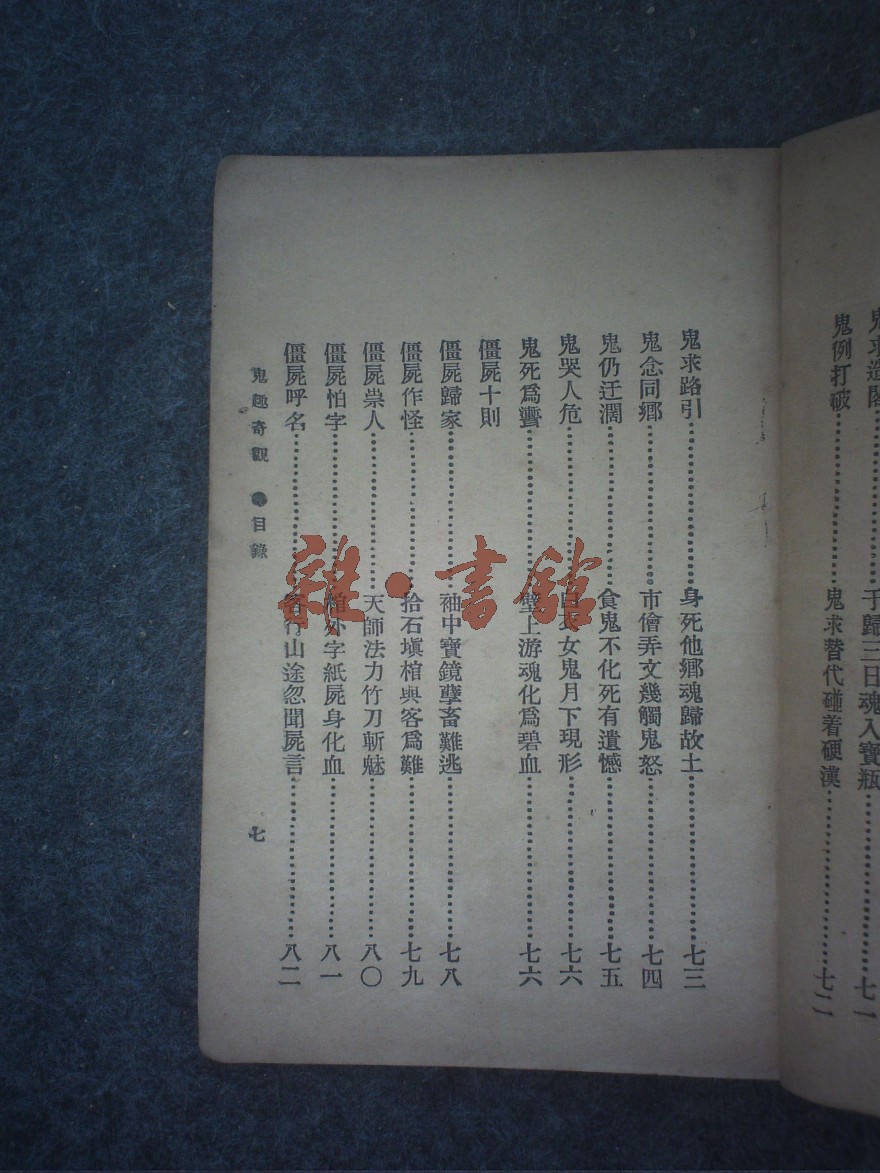 鬼求造閣……………于歸三日魂入寶瓶……………七一
鬼例打破……………鬼求替代碰着硬漢……………七二
鬼求路引……………身死他鄉魂歸故土……………七三
鬼念同鄉……………市儈弄文幾觸鬼怒……………七四
鬼仍迂濶……………食鬼不化死有遺憾……………七五
鬼哭人危……………白衣女鬼月下現形……………七六
鬼死爲魙……………壁上游魂化爲碧血……………七六
僵屍十則
僵屍歸家……………袖中寶鏡孽畜難逃……………七八
僵屍作怪……………拾石塡棺與客爲難……………七九
僵屍祟人……………天師法力竹刀斬魅……………八〇
僵屍怕字……………棺外字紙屍身化血……………八一
僵屍呼名……………客行山途忽聞屍言……………八二
鬼趣奇觀 目錄
七
雜·書館